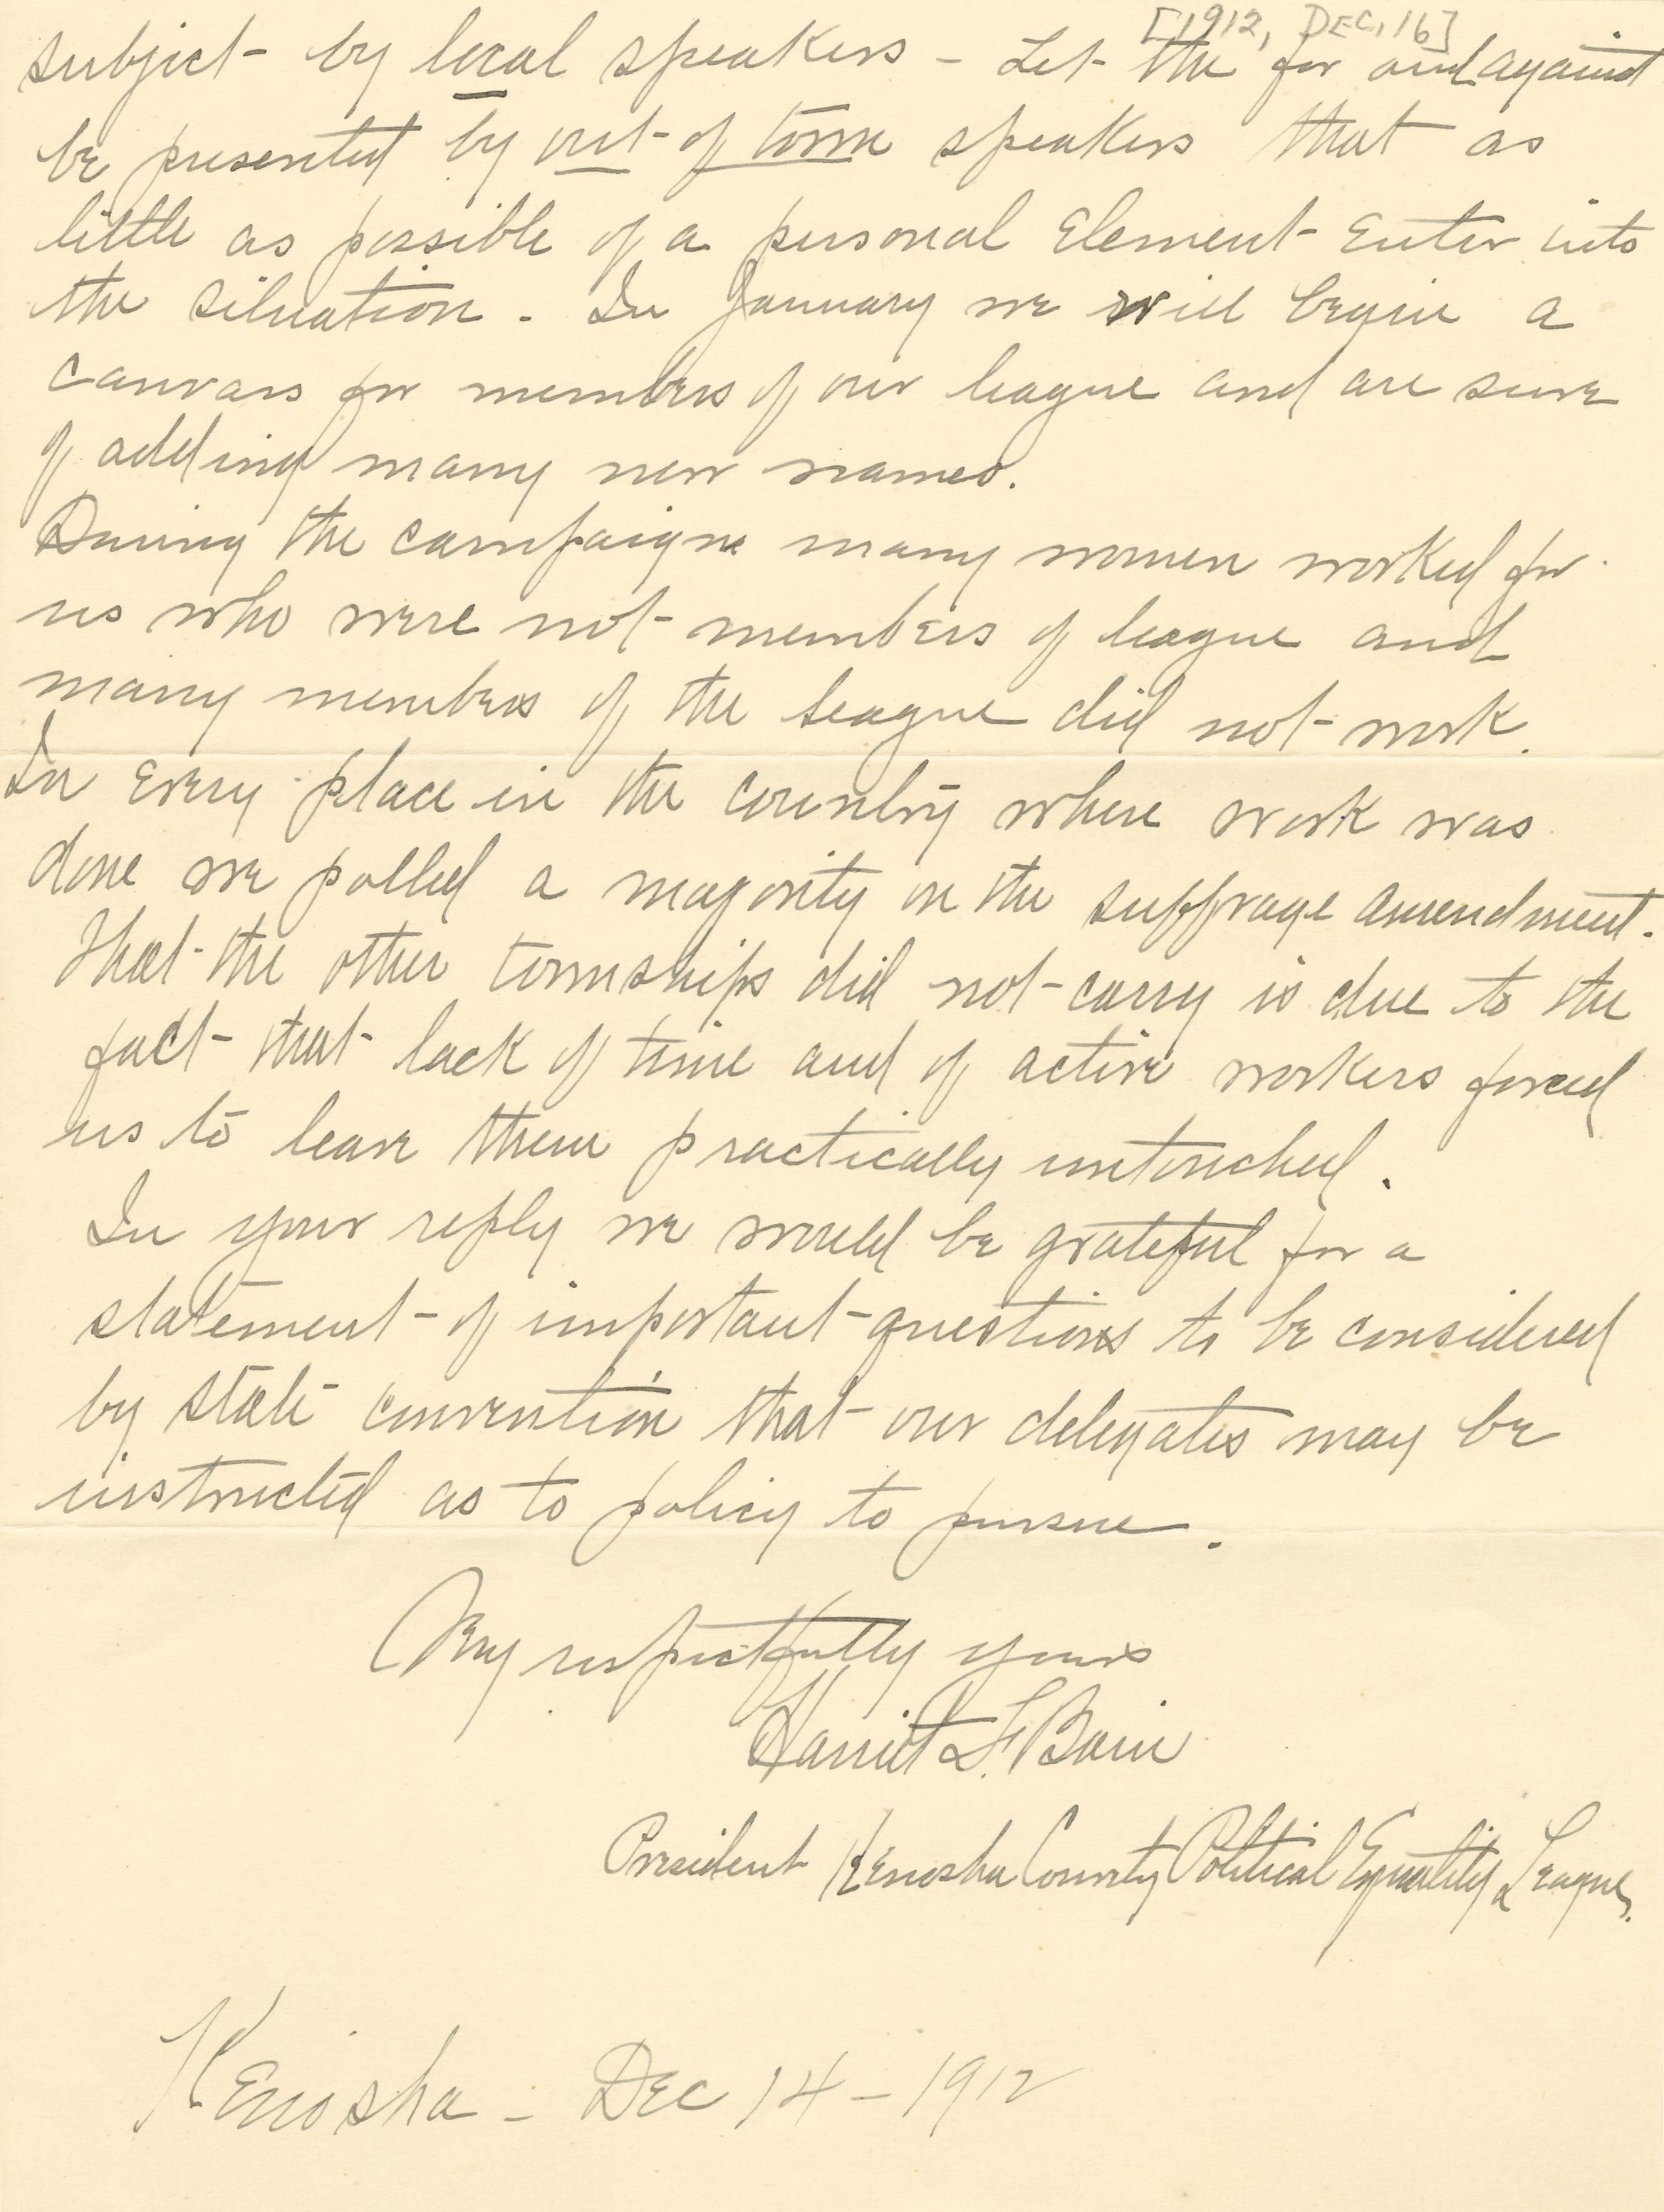 [1912, DEC, 16]
subject - by local speakers - Let the for and against
be presented by out - of town speakers that as
little as possible of a personal Element - Enter into
the situation - In January we will begin a
canvass for members of our league and are sure
of adding many new names.
During the campaign many women worked for
us who were not - members of league and
many members of the league did not - work.
In Every place in the country where work was
done we polled a majority on the suffrage amendment.
That - the other townships did not - carry is due to the
fact - that - lack of time and of active workers forced
us to leave them practically untouched.
In your reply we would be grateful for a
statement - of important - questions to be considered
by state convention that - our delegates may be
instructed as to policy to pursue.
Very respectfully yours
Harriet F. Bain
President Kenosha County Political Equality League.
Kenosha - Dec 14 - 1912